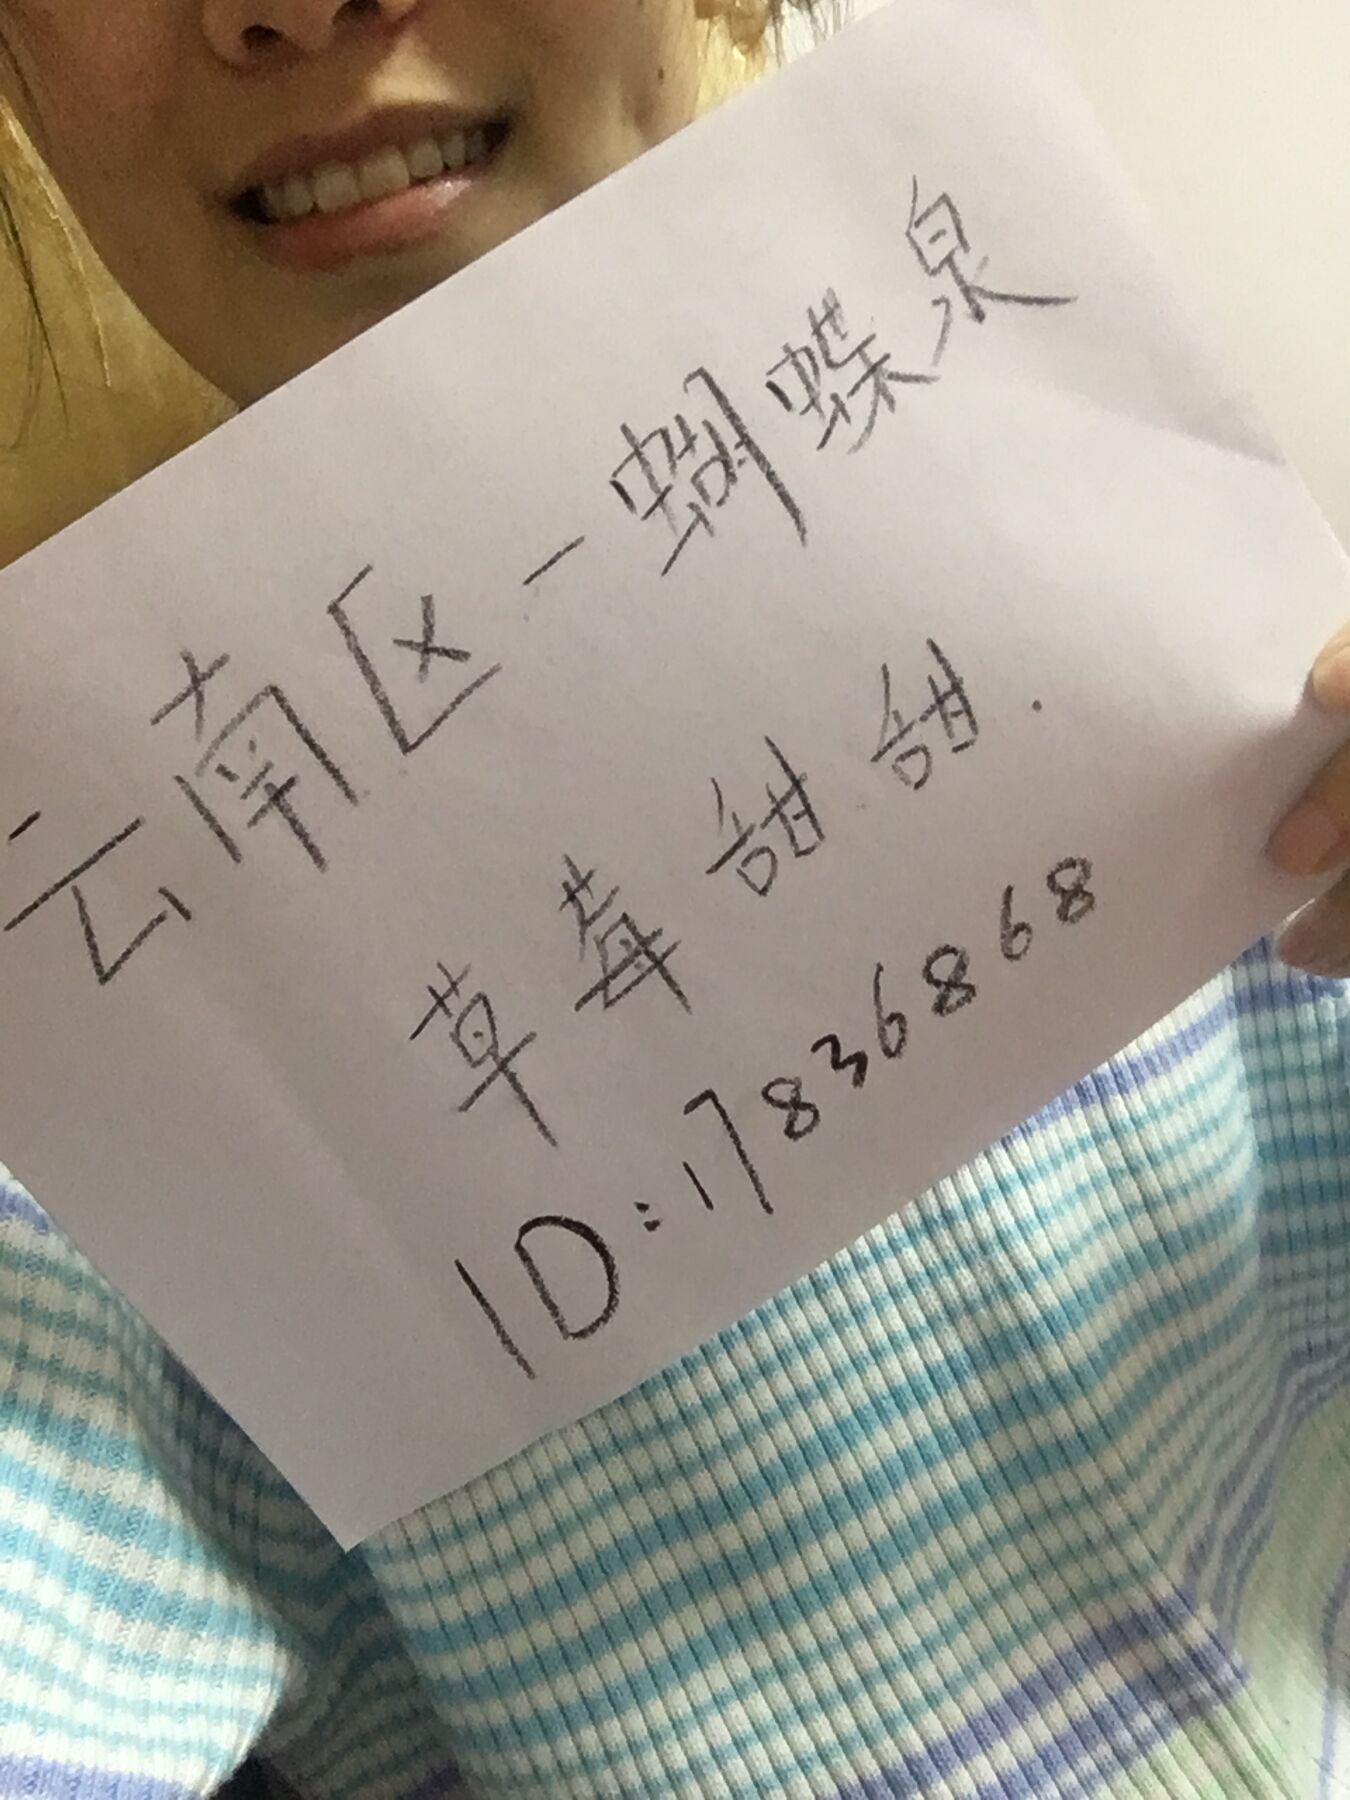 云南区-蝴蝶泉
草莓甜甜.
ID:17836868